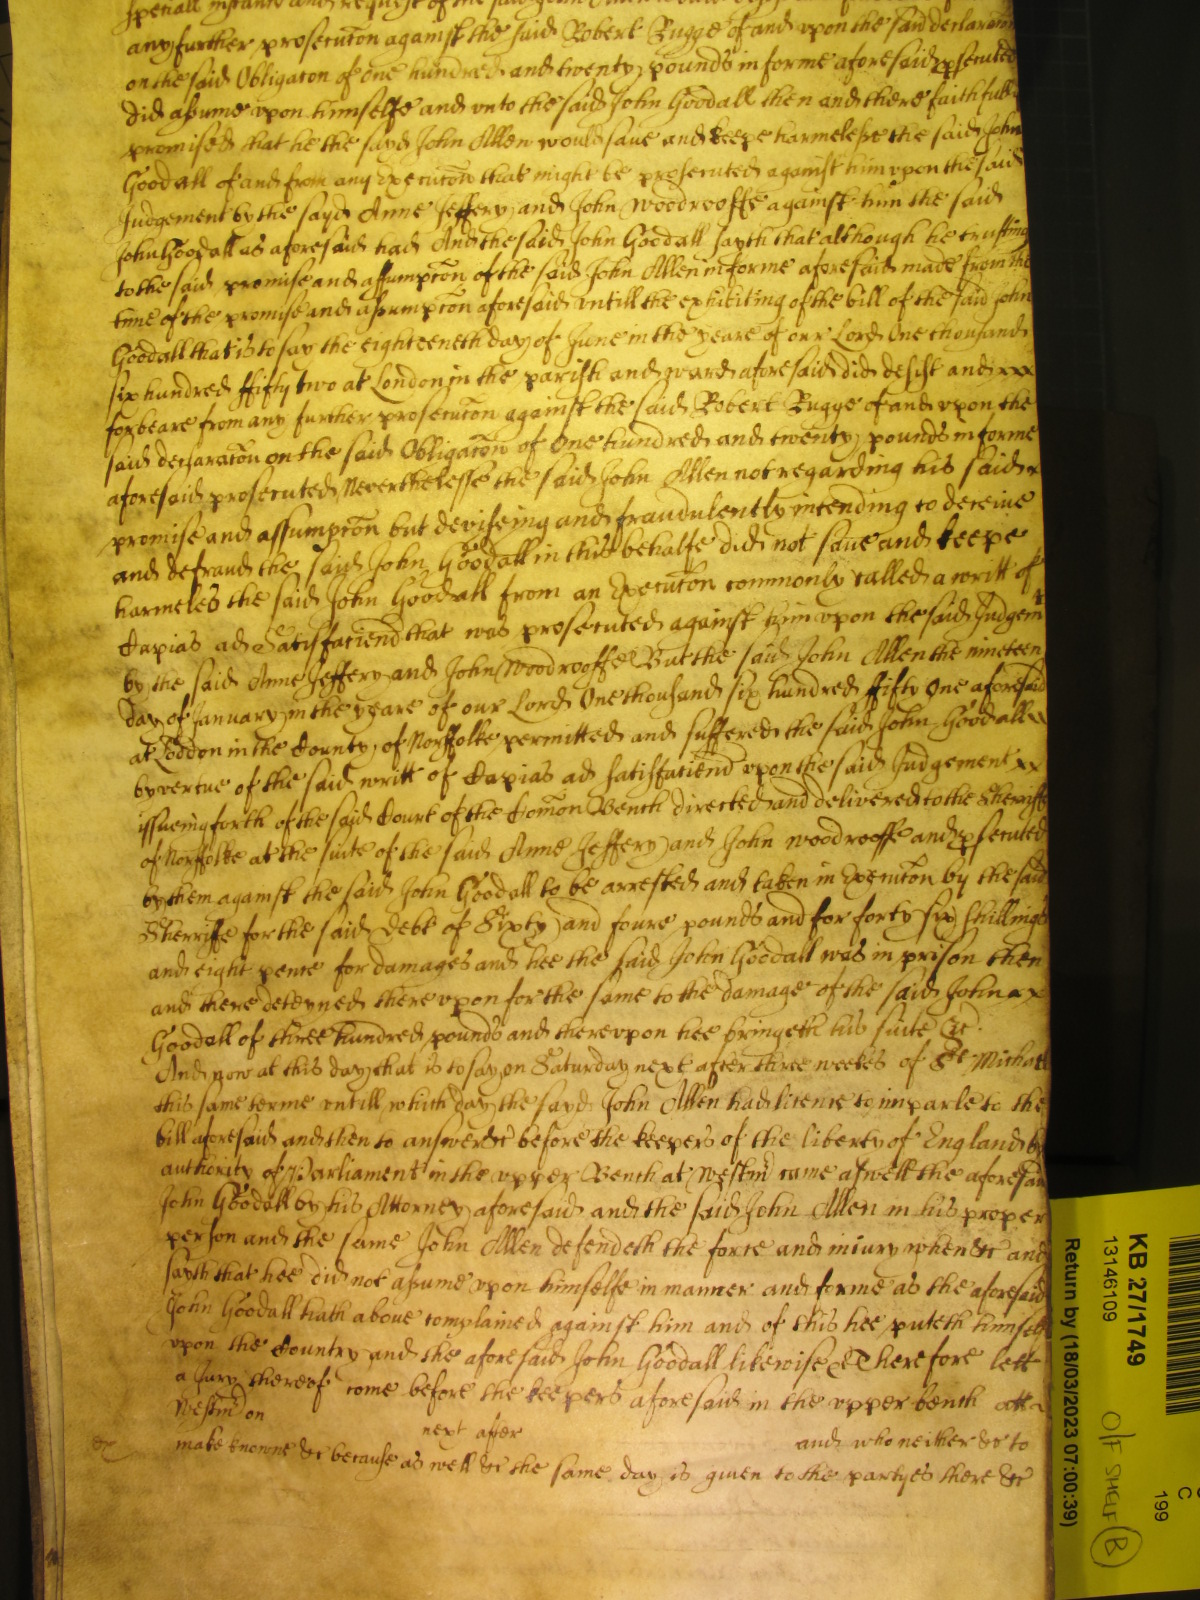 speciall instance and request of the said John Allen would
any further prosecucon against the said Robert Bugge of and vpon the said declaracon
on the said Obligacon of one hundred and twenty pounds in forme aforesaid psecuted
did assume vpon himselfe and vnto the said John Goodall then and there faithfully
promised that he the sayd John Allen would saue and keepe harmelesse the said John
Goodall of and from any Execucon that might be prosecuted against him vpon the said
Judgement by the sayd Anne Jeffery and John Woodrooffe against him the said
John Goodall as aforesaid had And the said John Goodall sayth that although he trusting
to the said promise and assumpcon of the said John Allen in forme aforesaid made from the
time of the promise and assumpcon aforesaid vntill the exhibiting of the bill of the said John
Goodall that is to say the eighteeneth day of June in the yeare of our Lord One thousand
six hundred fifty two at London in the parish and ward aforesaid did desist and xxx
forbeare from any further prosecucon against the said Robert Bugge of and vpon the
said declaracon on the said Obligacon of One hundred and twenty pounds in forme
aforesaid prosecuted Neverthelesse the said John Allen not regarding his said x
promise and assumpcon but deviseing and fraudulently intending to deceive
and defraud the said John Goodall in this behalfe did not save and keepe
harmeles the said John Goodall from an Execucon commonly called a writt of
Capias ad Satisfaciend that was prosecuted against him vpon the said Judgemt
by the said Anne Jeffery and John Woodrooffe But the said John Allen the nineteen
day of January in the yeare of our Lord One thousand six hundred fifty One aforesaid
at Loddon in the County of Norffolke permitted and suffered the said John Goodall
by vertue of the said writt of Capias ad satisfaciend vpon the said Judgement xx
issueing forth of the said Court of the Comon Bench directed and delivered to the Sherriffe
of Norffolke at the suite of the said Anne Jeffery and John woodrooffe and psecuted
by them against the said John Goodall to be arrested and taken in Execucon by the said
Sherriffe for the said debt of Sixty and foure pounds and for forty six shillings
and eight pence for damages and hee the said John Goodall was in prison then
and there deteyned therevpon for the same to the damage of the said John xx
Goodall of three hundred pounds and therevpon hee bringeth his suite &c.
And now at this day that is to say on Saturday next after three weekes of St Michaell
this same terme vntill which day the sayd John Allen had licence to imparle to the
bill aforesaid and then to answer &c before the keepers of the liberty of England by
authority of Parliament in the vpper Bench at westmr came aswell the aforesaid
John Goodall by his Attorney aforesaid and the said John Allen in his proper
person and the same John Allen defendeth the force and iniury when &c and
sayth that hee did not assume vpon himselfe in manner and forme as the aforesaid
John Goodall hath above complained against him and of this hee puteth himself
vpon the Country and the aforesaid John Goodall likewise &c Therefore lett
a Jury thereof come before the keepers aforesaid in the vpper bench att
Westmr on next after and who neither &c to
make knowne &c because as well &c the same day is given to the partyes there &c
KB 27/1749
13146109
Return by (18/03/2023 07:00:39)
O/F SHELF B
C
199